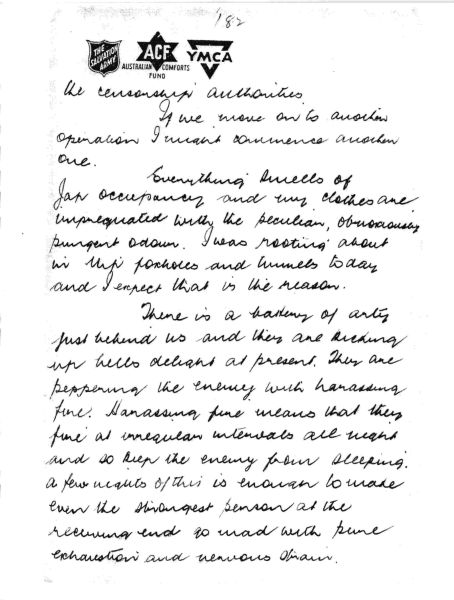 182
THE SALVATION ARMY
ACF
AUSTRALIAN COMFORTS FUND
YMCA
the censorship authorities.
If we move on to another
operation I might commence another
one.
Everything smells of
Jap occupancy and my clothes are
impregnated with the peculiar, obnoxiously
pungent odour. I was rooting about
in the foxholes and tunnels today
and I expect that is the reason.
There is a battery of arty
just behind us and they are kicking
up hells delight at present. They are
peppering the enemy with harassing
fire. Harassing fire means that they
fire at irregular intervals all night
and so keep the enemy from sleeping.
A few nights of this is enough to make
even the strongest person at the
receiving end go mad with pure
exhaustion and nervous strain.